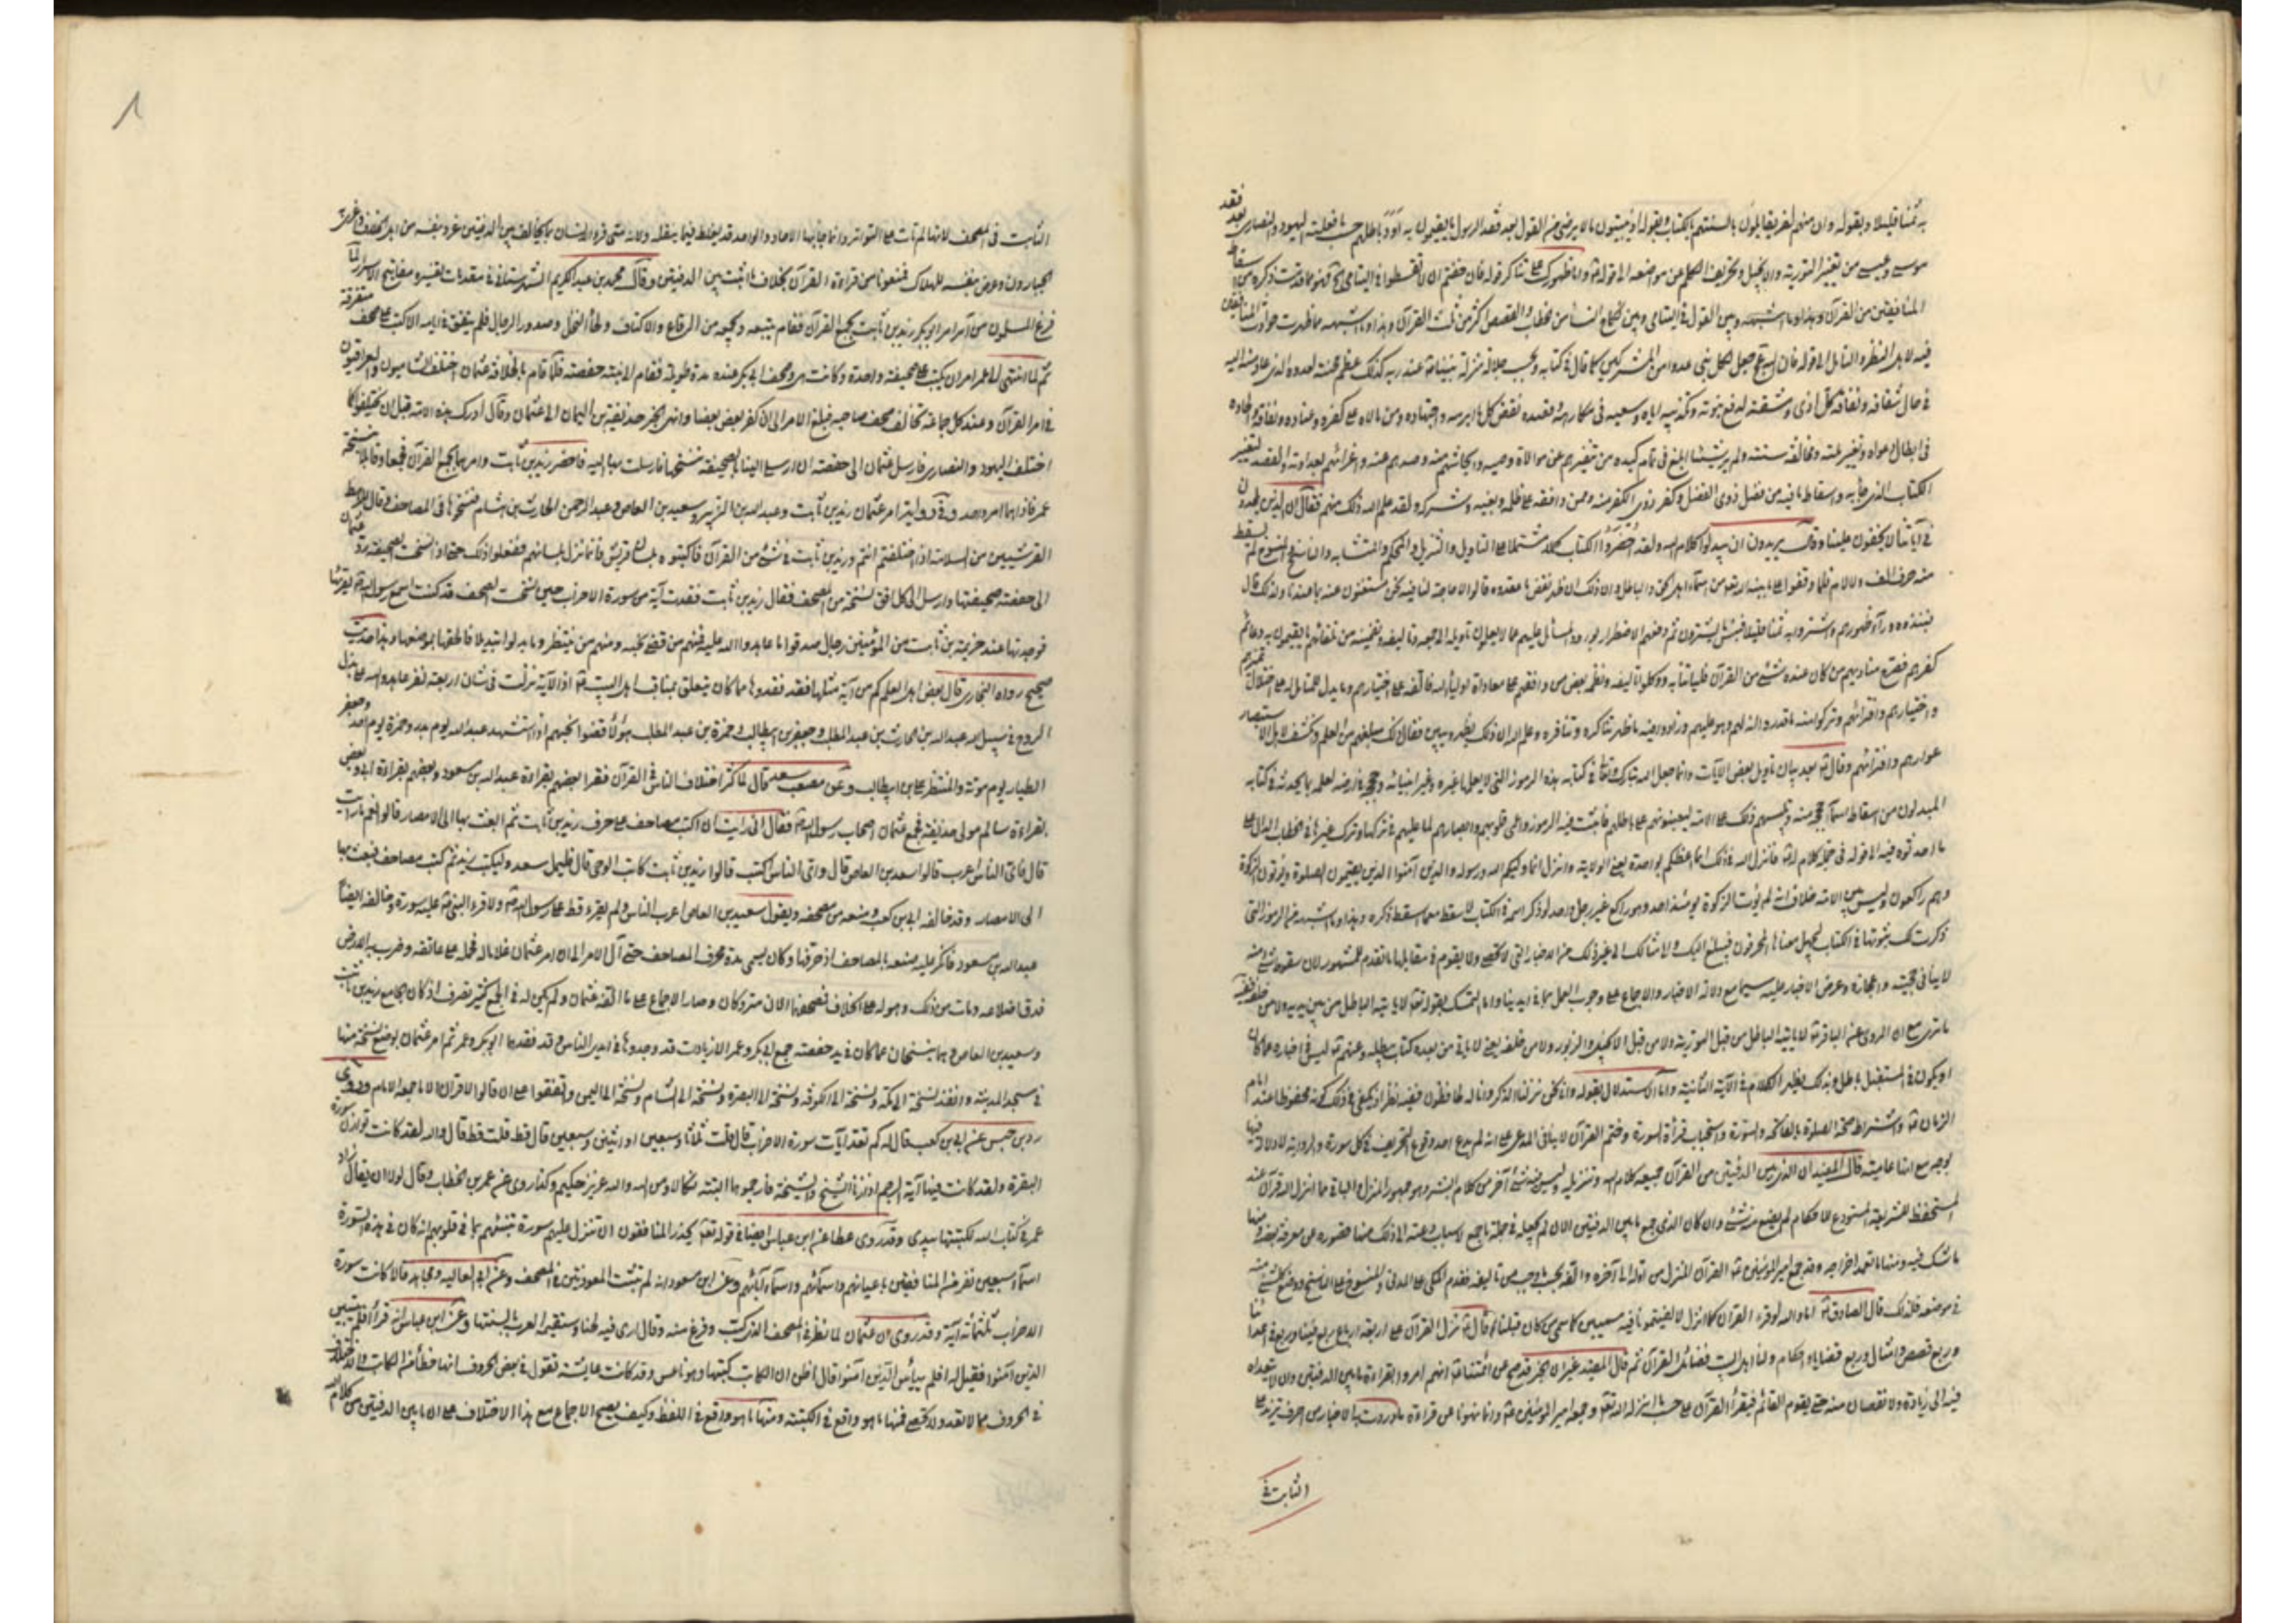 به ثمنا قليلا وبقوله وان منهم لفريقا يلون السنتهم بالكتاب وبقوله اذ يبيتون ما لا يرضى من القول بعد فقد الرسول ما يقيمون به اود باطلهم حسب ما فعلته اليهود والنصارى بعد فقد
موسى وعيسى من تغيير التورية والانجيل وتحريف الكلم عن مواضعه الى قوله واما ظهورك على تناكر قوله فان خفتم ان لا تقسطوا في اليتامى فهو مما قدمت ذكره من اسقاط
المنافقين من القرآن وبين القول في اليتامى وبين نكاح النساء من الخطاب والقصص اكثر من ثلث القرآن وهذا وما اشبهه مما ظهرت حوادث المنافقين
فيه لاهل النظر والتامل الى قوله فان الله جعل لكل نبي عدوا من المشركين كما قال في كتابه وبحسب جلالة منزلة نبينا عند ربه كذلك عظم محنته لعدوه الذي عاد منه اليه
في حال شقاقه ونفاقه كل اذى ومشقة لدفع نبوته وتكذيبه اياه وسعيه في مكارهه وقصده لنقض كل ما ابرمه واجتهاده ومن مالاه على كفره وعناده ونفاقه والحاده
في ابطال دعواه وتغيير ملته ومخالفة سنته ولم ير شيئا ابلغ في تمام كيده من تنفيرهم عن موالاة وصيه وايحاشهم منه وصدهم عنه واغرائهم بعداوته والقصد لتغيير
الكتاب الذي جاء به واسقاط ما فيه من فضل ذوي الفضل وكفر ذوي الكفر منه وممن وافقه على ظلمه وبغيه وشركه ولقد علم الله ذلك منهم فقال ان الذين يلحدون
في آياتنا لا يخفون علينا وقال يريدون ان يبدلوا كلام الله ولقد احضروا الكتاب كملا مشتملا على التاويل والتنزيل والمحكم والمتشابه والناسخ والمنسوخ لم يسقط
منه حرف الف ولا لام فلما وقفوا على ما بينه الله من اسماء اهل الحق والباطل وان ذلك ان ظهر نقض ما عقدوه قالوا لا حاجة لنا فيه نحن مستغنون عنه بما عندنا وكذلك قال
فنبذوه وراء ظهورهم واشتروا به ثمنا قليلا فبئس ما يشترون ثم دفعهم الاضطرار لورود المسائل عليهم عما لا يعلمون تاويله الى جمعه وتاليفه وتضمينه من تلقائهم ما يقيمون به دعائم
كفرهم فصرخ مناديهم من كان عنده شيء من القرآن فلياتنا به ووكلوا تاليفه ونظمه الى بعض من وافقهم على معاداة اولياء الله فالفه على اختيارهم وما يدل للمتامل له على اختلال تمييزهم
وافترائهم وتركوا منه ما قدروا انه لهم وهو عليهم وزادوا فيه ما ظهر تناكره وتنافره وعلم الله ان ذلك يظهر ويبين فقال ذلك مبلغهم من العلم وانكشف لاهل الاستبصار
عوارهم وافتراؤهم وقال بعد بيان تاويل بعض الآيات وانما جعل الله تبارك وتعالى في كتابه هذه الرموز التي لا يعلمها غيره وغير انبيائه وحججه في ارضه لعلمه بما يحدثه في كتابه
المبدلون من اسقاط اسماء حججه منه وتلبيسهم ذلك على الامة ليعينوهم على باطلهم فاثبت فيه الرموز واعمى قلوبهم وابصارهم لما عليهم في تركها وترك غيرها من الخطاب الدال على
ما احدثوه فيه الى قوله في جملة كلام له فانزل الله في ذلك انما اعظكم بواحدة يعني الولاية وانزل انما وليكم الله ورسوله والذين آمنوا الذين يقيمون الصلوة ويؤتون الزكوة
وهم راكعون وليس بين الامة خلاف انه لم يؤت الزكوة يومئذ احد وهو راكع غير رجل واحد لو ذكر اسمه في الكتاب لاسقط مع ما اسقط ذكره وهذا وما اشبهه من الرموز التي
ذكرت لك ثبوتها في الكتاب ليجهل معناها المحرفون فيبلغ اليك والى امثالك الى غير ذلك من الاخبار التي لا تحصى ولا يقوم في مقابلها ما تقدم للمشهور لان سقوط شيء منه
لا ينافي حجيته واعجازه وعرض الاخبار عليه سيما مع دلالة الاخبار والاجماع على وجوب العمل بما في ايدينا واما التمسك بقوله تعالى لا ياتيه الباطل من بين يديه ولا من خلفه ففيه
ما ترى مع ان المروي عن الباقر لا ياتيه الباطل من قبل التورية ولا من قبل الانجيل والزبور ولا من خلفه يعني لا ياتي من بعده كتاب يبطله وعنهم ليس في اخباره عما كان
او يكون في المستقبل باطل وبذلك يظهر الكلام في الآية الثانية واما الاستدلال بقوله وانا نحن نزلنا الذكر وانا له لحافظون ففيه نظر اذ يكفي في ذلك كونه محفوظا عند امام
الزمان واشتراط صحة الصلوة بالفاتحة والسورة واستحباب قرأة السورة وختم القرآن لا ينافي المدعى على انه لم يدع احد وقوع التحريف في كل سورة والرواية لا دلالة فيها
بوجه مع انها عامية قال المفيد ان الذي بين الدفتين من القرآن جميعه كلام الله وتنزيله وليس فيه شيء آخر من كلام البشر وهو جمهور المنزل والباقي مما انزله الله قرآنا عند
المستحفظ للشريعة المستودع للاحكام لم يضع منه شيء وان كان الذي جمع ما بين الدفتين الآن لم يجعله في جملة ما جمع لاسباب دعته الى ذلك منها قصوره عن معرفة بعضه ومنها
ما شك فيه ومنها ما تعمد اخراجه وقد جمع امير المؤمنين القرآن المنزل من اوله الى آخره والفه بحسب ما وجب من تاليفه فقدم المكي على المدني والمنسوخ على الناسخ ووضع كل شيء منه
في موضعه فلذلك قال الصادق اما والله لو قرء القرآن كما انزل لالفيتمونا فيه مسمين كما سمي من كان قبلنا وقال نزل القرآن على اربعة ارباع ربع فينا وربع في اعدائنا
وربع قصص وامثال وربع قضايا واحكام ولنا اهل البيت فضائل القرآن ثم قال المفيد غير ان الخبر قد صح عن ائمتنا انهم امروا بقراءة ما بين الدفتين وان لا نتعداه
فيه الى زيادة ولا نقصان منه حتى يقوم القائم فيقرأ القرآن على حسب ما انزله الله تعالى وجمعه امير المؤمنين وانما نهونا عن قراءة ما وردت بالاخبار من احرف تزيد على
الثابت في
٨
الثابت في المصحف لانها لم تات على التواتر وانما جاء بها الآحاد والواحد قد يغلط فيما ينقله ولانه متى قرء الانسان بما يخالف ما بين الدفتين غرر بنفسه من اهل الخلاف واغرى به
الجبارون وعرض نفسه للهلاك فمنعونا من قراءة القرآن بخلاف ما اثبت بين الدفتين وقال محمد بن عبد الكريم الشهرستاني في مقدمات تفسيره مفاتيح الاسرار لما
فرغ المسلمون من امر ابو بكر زيد بن ثابت بجمع القرآن فقام يتتبعه ويجمعه من الرقاع والاكتاف ولحاء النخل وصدور الرجال فلم يتفق في ايامه الا كتب على صحف متفرقة
ثم لما انتهى الى عمر امر ان يكتب على صحيفة واحدة وكانت هي ومصحف ابي بكر عنده مدة طويلة فقام الى ابنته حفصة فلما قام بالخلافة عثمان اختلف الشاميون والعراقيون
في امر القرآن وعند كل جماعة مصحف تخالف مصحف صاحبه فبلغ الامر الى ان كفر بعض بعضا وانهى الخبر حذيفة بن اليمان الى عثمان وقال ادرك هذه الامة قبل ان يختلفوا كما
اختلف اليهود والنصارى فارسل عثمان الى حفصة ان ارسلي الينا بالصحيفة ننسخها فارسلت بها اليه فاحضر زيد بن ثابت وامرهما بجمع القرآن فجمعا وقابلا بنسخة
عمر فاذا هما امر واحد وفي رواية امر عثمان زيد بن ثابت وعبد الله بن الزبير وسعيد بن العاص وعبد الرحمن بن الحارث بن هشام فنسخوها في المصاحف وقال للرهط
القرشيين من الثلاثة اذا اختلفتم انتم وزيد بن ثابت في شيء من القرآن فاكتبوه بلسان قريش فانما نزل بلسانهم ففعلوا ذلك حتى اذا نسخت الصحيفة رد عثمان
الى حفصة صحيفتها وارسل الى كل افق نسخة من المصحف فقال زيد بن ثابت فقدت آية من سورة الاحزاب حين نسخت المصحف قد كنت اسمع رسول الله يقرئها
فوجدتها عند خزيمة بن ثابت من المؤمنين رجال صدقوا ما عاهدوا الله عليه فمنهم من قضى نحبه ومنهم من ينتظر وما بدلوا تبديلا فالحقها بموضعها وهذا حديث
صحيح رواه البخاري قال بعض اهل العلم كم من آية مثلها فقدوها مما كان يتعلق بمناقب اهل البيت اذ الآية نزلت في شان اربعة نفر عاهدوا الله على بذل
الروح في سبيل الله عبد الله بن الحارث بن عبد المطلب وجعفر بن ابيطالب وحمزة بن عبد المطلب هؤلاء قضوا نحبهم اذ استشهد عبد الله يوم بدر وحمزة يوم احد وجعفر
الطيار يوم موتة والمنتظر علي بن ابيطالب وعن مصعب بن سعد قال لما كثر اختلاف الناس في القرآن فقرأ بعضهم بقراءة عبد الله بن مسعود وبعضهم بقراءة ابي وبعض
بقراءة سالم مولى حذيفة جمع عثمان اصحاب رسول الله فقال اني رايت ان اكتب مصاحف على حرف زيد بن ثابت ثم ابعث بها الى الامصار قالوا نعم ما رايت
قال فاي الناس اعرب قالوا سعيد بن العاص قال واي الناس اكتب قالوا زيد بن ثابت كاتب الوحي قال فليمل سعيد وليكتب زيد ثم كتب مصاحف فبعث بها
الى الامصار وقد خالفه ابي بن كعب ومنعه من مصحفه ويقول سعيد بن العاص اعرب الناس ولم يقرء قط على رسول الله ولا قرء النبي عليه سورة وخالفه ايضا
عبد الله بن مسعود فانكر عليه منعه المصاحف اذ حرقها وكان يسمي هذه محرق المصاحف حتى آل الامر الى ان امر عثمان غلاما له فحمله على عاتقه وضرب به الارض
فدق اضلاعه ومات من ذلك وهو له على الخلاف فمصحفهما الآن متروكان وصار الاجماع على ما الفه عثمان ولم يكن له في الجمع كثير تصرف اذ كان الجامع زيد بن ثابت
وسعيد بن العاص وهما ينسخان مما كان في يد حفصة جمع ابي بكر وعمر الا زيادات قد وجدوها في ايدي الناس وقد فقدها ابو بكر وعمر ثم امر عثمان بوضع نسخة منها
في مسجد المدينة وانفذ نسخة الى مكة ونسخة الى الكوفة ونسخة الى البصرة ونسخة الى الشام ونسخة الى اليمن واتفقوا على ان قالوا لا قرآن الا ما جمعه الامام وروى
زر بن حبيش عن ابي بن كعب قال له كم تعد آيات سورة الاحزاب قال قلت ثلاثا وسبعين او اثنتين وسبعين قال قط قلت قط قال والله لقد كانت توازي سورة
البقرة ولقد كانت فيها آية الرجم اذا زنا الشيخ والشيخة فارجموهما البتة نكالا من الله والله عزيز حكيم وكذا روي عن عمر بن الخطاب وقال لولا ان يقال زاد
عمر في كتاب الله لكتبتها بيدي وقد روى عطا عن ابن عباس ايضا في قوله تعالى يحذر المنافقون ان تنزل عليهم سورة تنبئهم بما في قلوبهم انه كان في هذه السورة
اسماء سبعين نفر من المنافقين باعيانهم واسمائهم واسماء آبائهم وعن ابن مسعود انه لم تثبت المعوذتين في المصحف وعن ابي العالية ومجاهد قالا كانت سورة
الاحزاب ثلثمائة آية وقد روي ان عثمان لما نظر في المصحف الذي كتب وفرغ منه وقال ارى فيه لحنا وستقيمه العرب بالسنتها وعن ابن عباس انه قرأ افلم يتبين
الذين آمنوا فقيل له افلم ييأس الذين آمنوا قال اظن ان الكاتب كتبها وهو ناعس وقد كانت عايشة تقول في بعض الحروف انها خطأ من الكاتب والاختلاف
في الحروف مما لا تعد ولا تحصى فمنها ما هو واقع في الكتبة ومنها ما هو واقع في اللفظ وكيف يصح الاجماع مع هذا الاختلاف على ان ما بين الدفتين من كلام الله